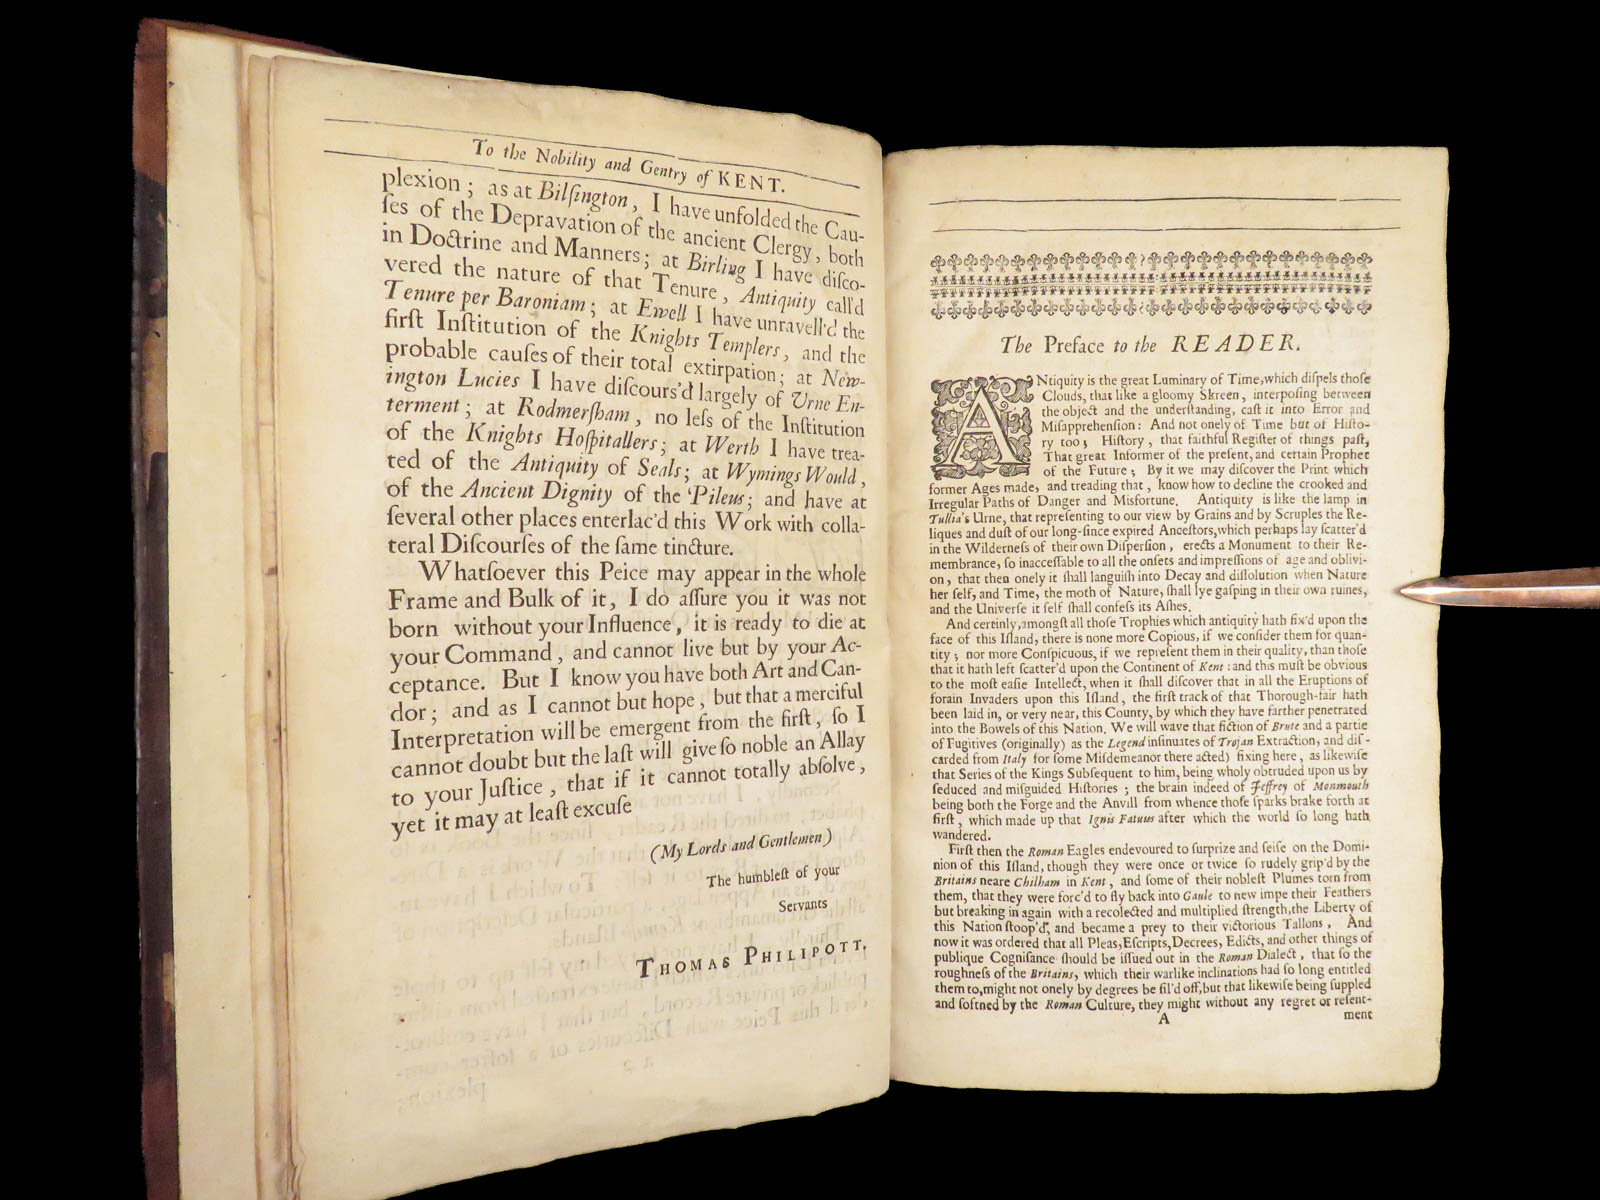 To the Nobility and Gentry of KENT.
plexion; as at Bilſington, I have unfolded the Cau-
ſes of the Depravation of the ancient Clergy, both
in Doctrine and Manners; at Birling I have diſco-
vered the nature of that Tenure, Antiquity call'd
Tenure per Baroniam; at Ewell I have unravell'd the
firſt Inſtitution of the Knights Templers, and the
probable cauſes of their total extirpation; at New-
ington Lucies I have diſcours'd largely of Urne En-
terment; at Rodmerſham, no leſs of the Inſtitution
of the Knights Hoſpitallers; at Werth I have trea-
ted of the Antiquity of Seals; at Wymings Would,
of the Ancient Dignity of the Pileus; and have at
ſeveral other places enterlac'd this Work with colla-
teral Diſcourſes of the ſame tincture.
Whatſoever this Peice may appear in the whole
Frame and Bulk of it, I do aſſure you it was not
born without your Influence, it is ready to die at
your Command, and cannot live but by your Ac-
ceptance. But I know you have both Art and Can-
dor; and as I cannot but hope, but that a merciful
Interpretation will be emergent from the firſt, ſo I
cannot doubt but the laſt will give ſo noble an Allay
to your Juſtice, that if it cannot totally abſolve,
yet it may at leaſt excuſe
(My Lords and Gentlemen)
The humbleſt of your
Servants
THOMAS PHILIPOTT.
The Preface to the READER.
ANtiquity is the great Luminary of Time, which diſpels thoſe
Clouds, that like a gloomy Skreen, interpoſing between
the object and the underſtanding, caſt it into Error and
Miſapprehenſion: And not onely of Time but of Hiſto-
ry too; Hiſtory, that faithful Regiſter of things paſt,
That great Informer of the preſent, and certain Prophet
of the Future; By it we may diſcover the Print which
former Ages made, and treading that, know how to decline the crooked and
Irregular Paths of Danger and Misfortune. Antiquity is like the lamp in
Tullia's Urne, that repreſenting to our view by Grains and by Scruples the Re-
liques and duſt of our long-ſince expired Anceſtors, which perhaps lay ſcatter'd
in the Wilderneſs of their own Diſperſion, erects a Monument to their Re-
membrance, ſo inacceſſable to all the onſets and impreſſions of age and oblivi-
on, that then onely it ſhall languiſh into Decay and diſſolution when Nature
her ſelf, and Time, the moth of Nature, ſhall lye gaſping in their own ruines,
and the Univerſe it ſelf ſhall confeſs its Aſhes.
And certinly, amongſt all thoſe Trophies which antiquity hath fix'd upon the
face of this Iſland, there is none more Copious, if we conſider them for quan-
tity; nor more Conſpicuous, if we repreſent them in their quality, than thoſe
that it hath left ſcatter'd upon the Continent of Kent: and this muſt be obvious
to the moſt eaſie Intellect, when it ſhall diſcover that in all the Eruptions of
forain Invaders upon this Iſland, the firſt track of that Thorough-fair hath
been laid in, or very near, this County, by which they have farther penetrated
into the Bowels of this Nation. We will wave that fiction of Brute and a partie
of Fugitives (originally) as the Legend inſinuates of Trojan Extraction, and diſ-
carded from Italy for ſome Miſdemeanor there acted) fixing here, as likewiſe
that Series of the Kings Subſequent to him, being wholy obtruded upon us by
ſeduced and miſguided Hiſtories; the brain indeed of Jeffrey of Monmouth
being both the Forge and the Anvill from whence thoſe ſparks brake forth at
firſt, which made up that Ignis Fatuus after which the world ſo long hath
wandered.
Firſt then the Roman Eagles endevoured to ſurprize and ſeiſe on the Domi-
nion of this Iſland, though they were once or twice ſo rudely grip'd by the
Britains neare Chilham in Kent, and ſome of their nobleſt Plumes torn from
them, that they were forc'd to fly back into Gaule to new impe their Feathers
but breaking in again with a recolected and multiplied ſtrength, the Liberty of
this Nation ſtoop'd, and became a prey to their victorious Tallons, And
now it was ordered that all Pleas, Eſcripts, Decrees, Edicts, and other things of
publique Cogniſance ſhould be iſſued out in the Roman Dialect, that ſo the
roughneſs of the Britains, which their warlike inclinations had ſo long entitled
them to, might not onely by degrees be fil'd off, but that likewiſe being ſuppled
and ſoftned by the Roman Culture, they might without any regret or reſent-
A
ment